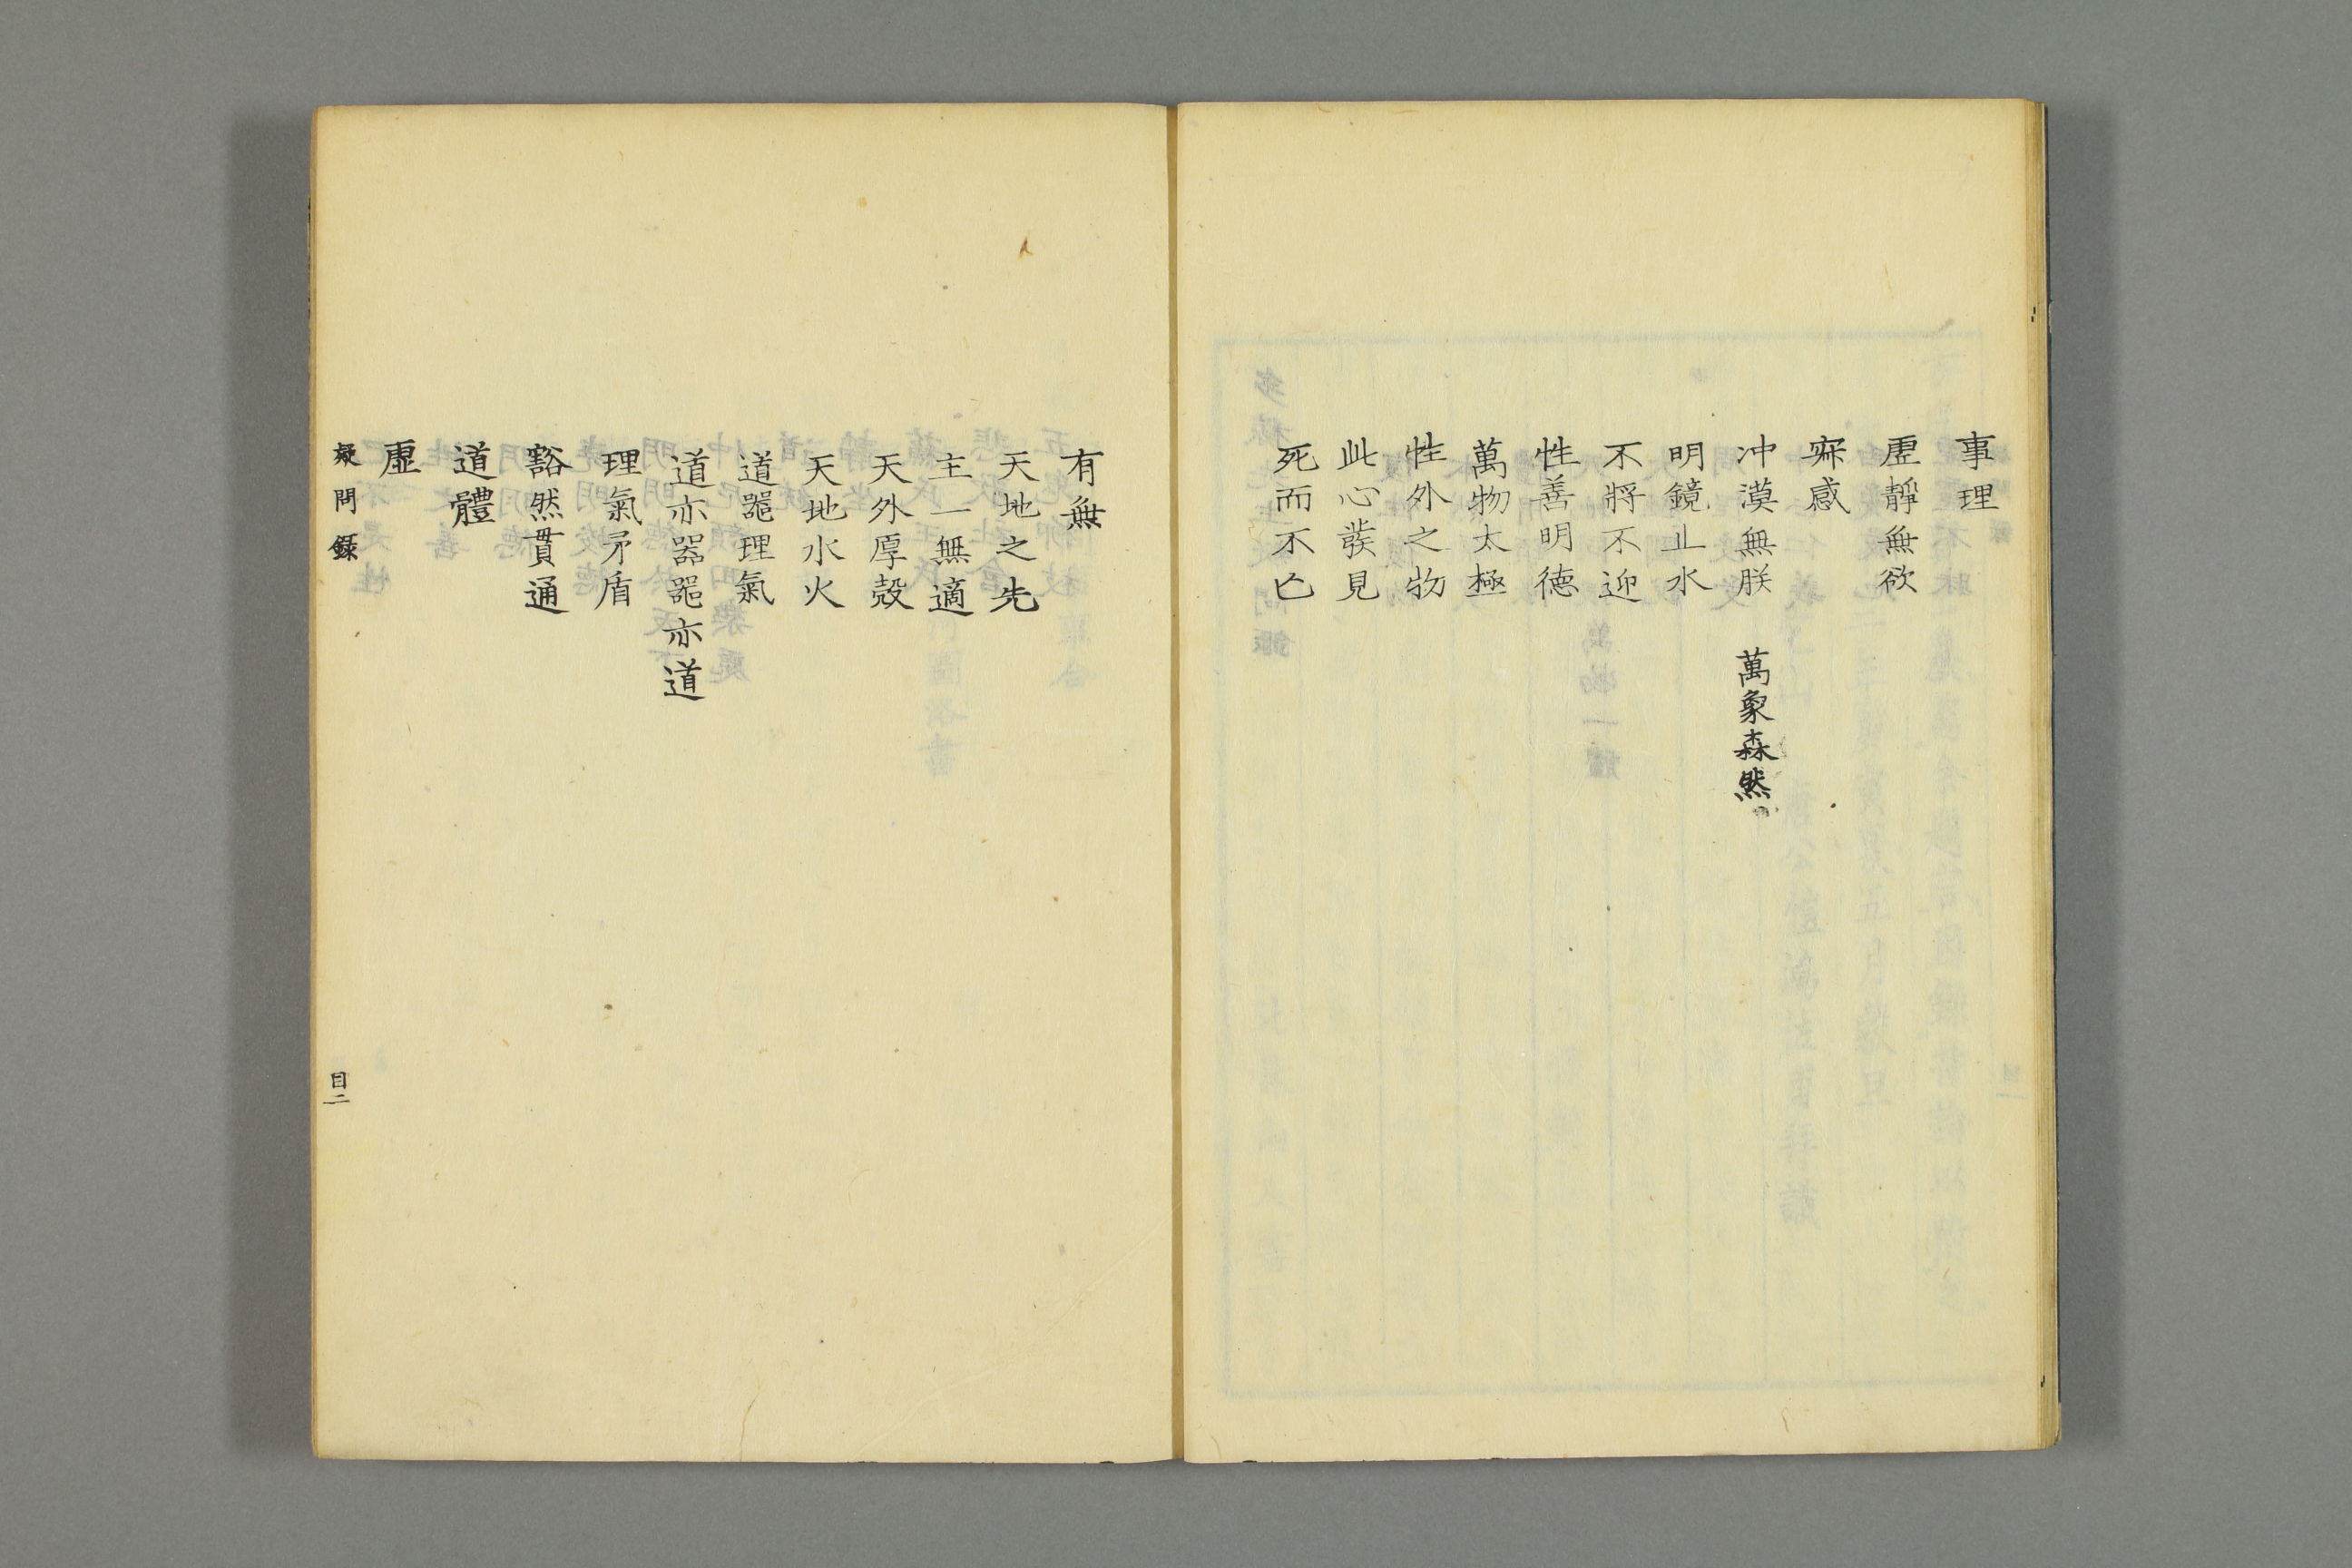 事理
虛靜無欲
寂感
冲漠無朕 萬象森然
明鏡止水
不將不迎
性善明德
萬物太極
性外之物
此心發見
死而不亡
有無
天地之先
主一無適
天外厚殼
天地水火
道器理氣
道亦器器亦道
理氣矛盾
豁然貫通
道體
虛
疑問錄
目二